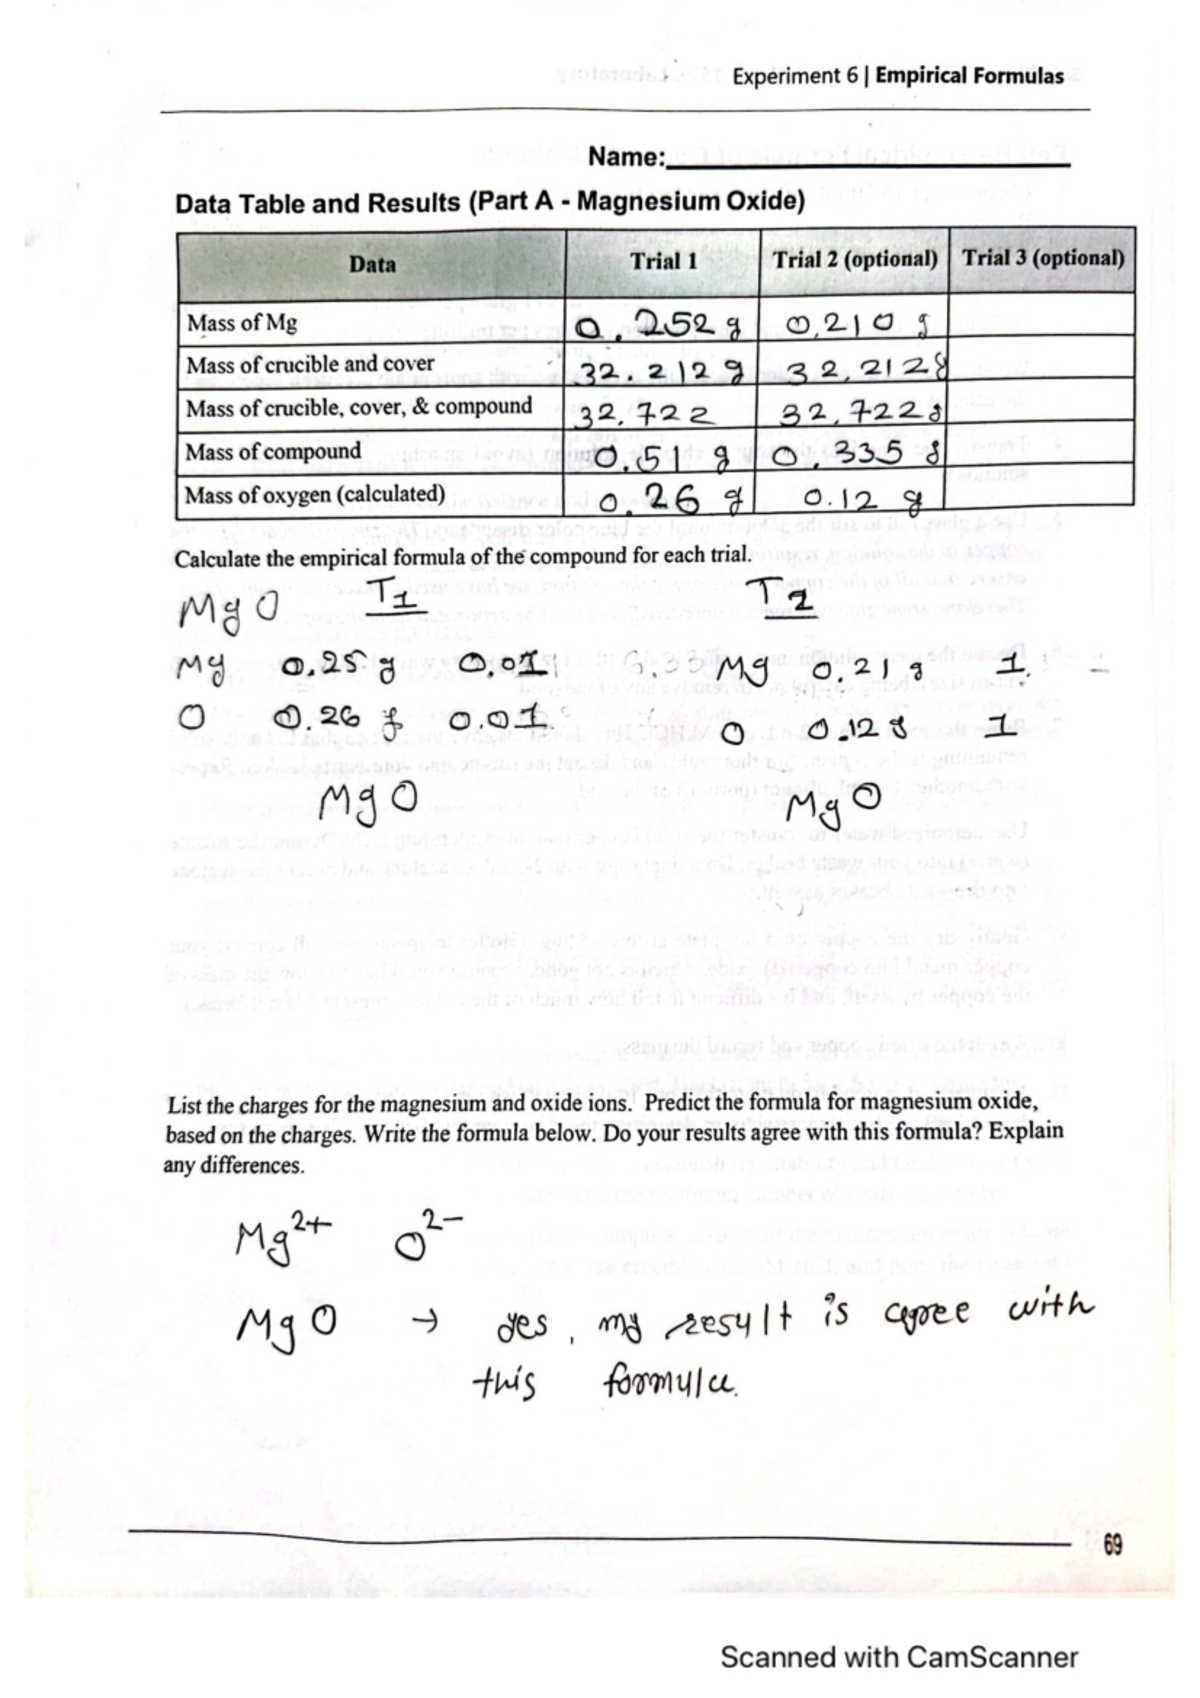 Experiment 6 | Empirical Formulas
Name:
Data Table and Results (Part A - Magnesium Oxide)
Data Trial 1 Trial 2 (optional) Trial 3 (optional)
Mass of Mg 0.252 g 0.210 g
Mass of crucible and cover 32.212 g 32.212 g
Mass of crucible, cover, & compound 32.722 32.722 g
Mass of compound 0.51 g 0.335 g
Mass of oxygen (calculated) 0.26 g 0.12 g
Calculate the empirical formula of the compound for each trial.
MgO T1 T2
Mg 0.25 g 0.01 Mg 0.21 g 1
O 0.26 g 0.01 O 0.12 g 1
MgO MgO
List the charges for the magnesium and oxide ions. Predict the formula for magnesium oxide,
based on the charges. Write the formula below. Do your results agree with this formula? Explain
any differences.
Mg2+ O2-
MgO → yes, my result is agree with
this formula.
69
Scanned with CamScanner